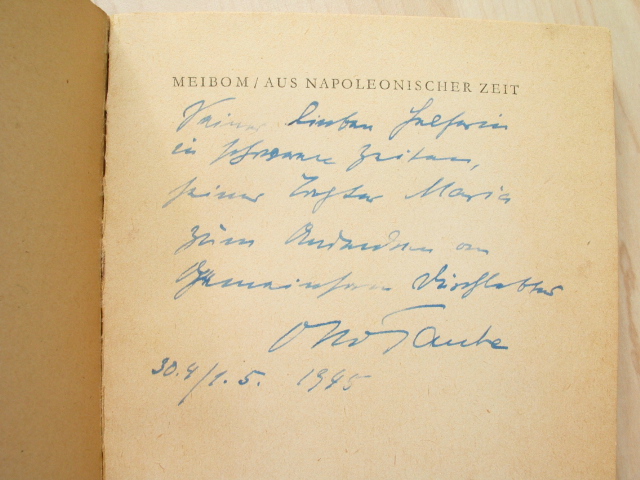 MEIBOM / AUS NAPOLEONISCHER ZEIT
Seiner lieben Helferin
in schweren Zeiten,
seiner Tochter Maria
zum Andenken an
Gemeinsam Durchlebtes
Otto Taube
30.4/1.5. 1945